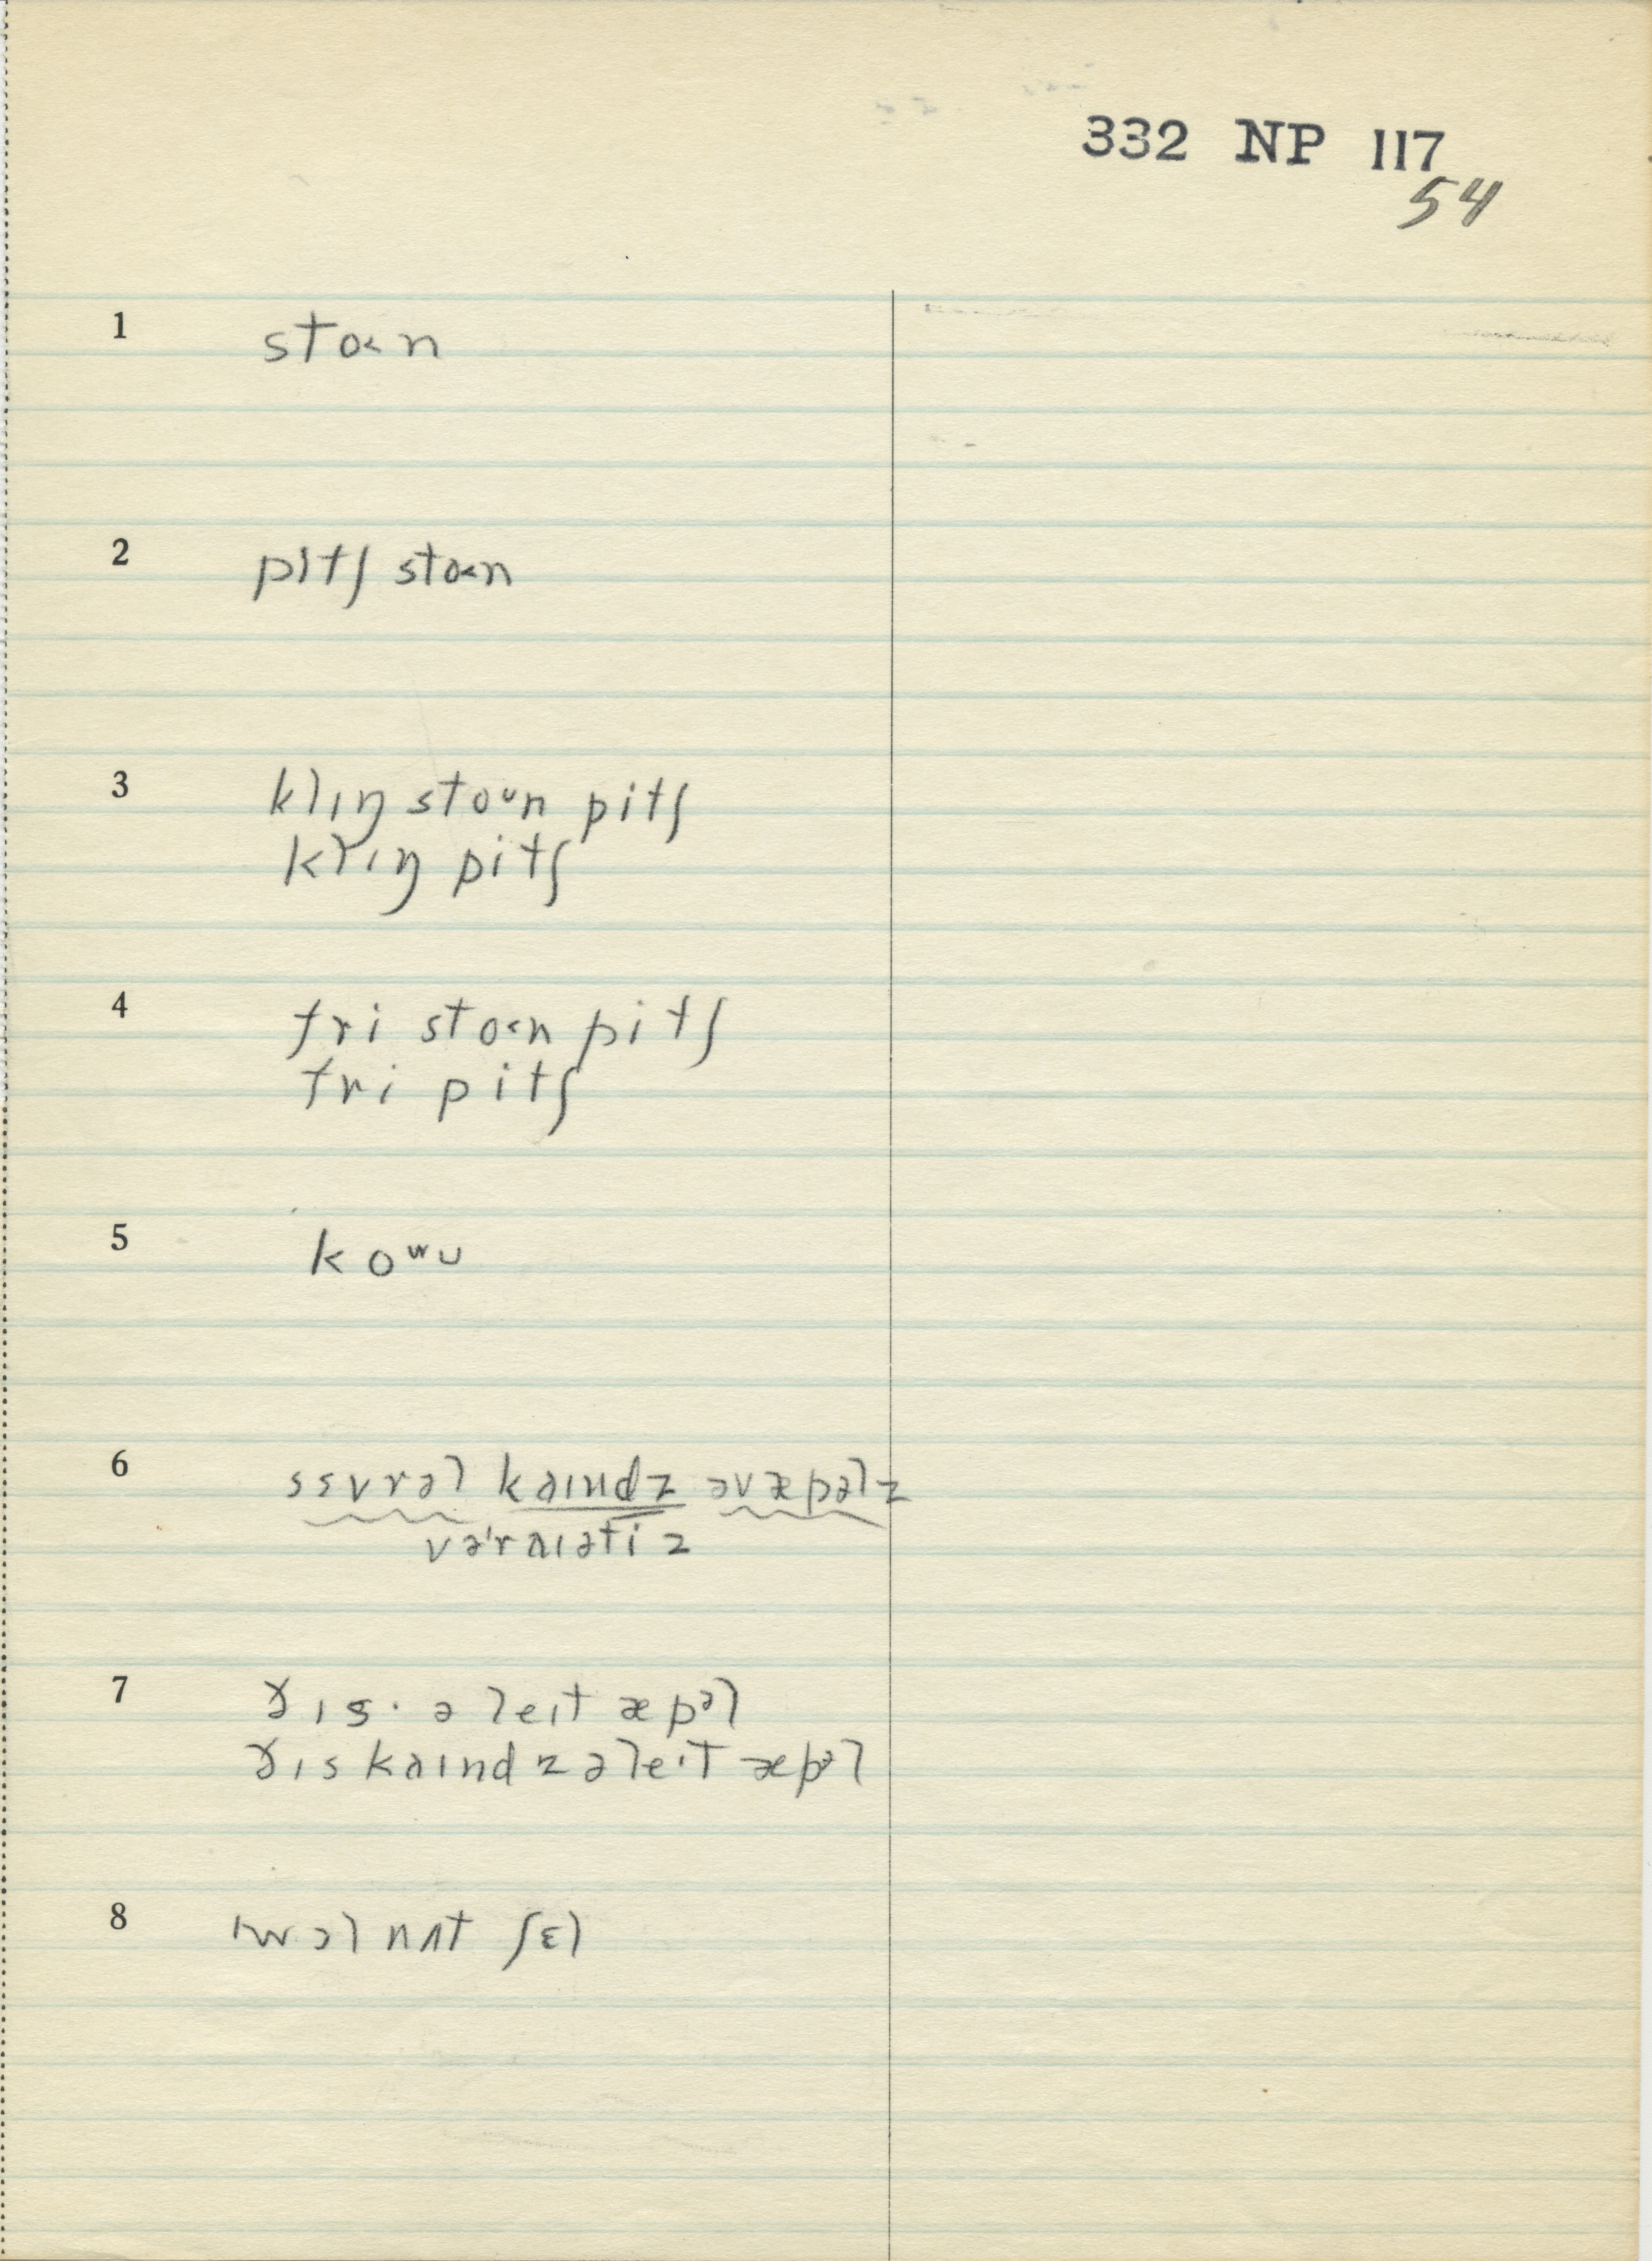 332 NP 117
54
1 stoɷn
2 pitʃ stoɷn
3 klɪŋ stoᶷn pitʃ
klɪŋ pitʃ
4 fri stoɷn pitʃ
fri pitʃ
5 koʷu
6 sɛvrəl kaɪndz əv æpəlz
vəˈraɪətiz
7 ðɪs · ə leɪt æpᵊl
ðɪs kaɪndz ə leɪt æpᵊl
8 wɔl nʌt ʃɛl